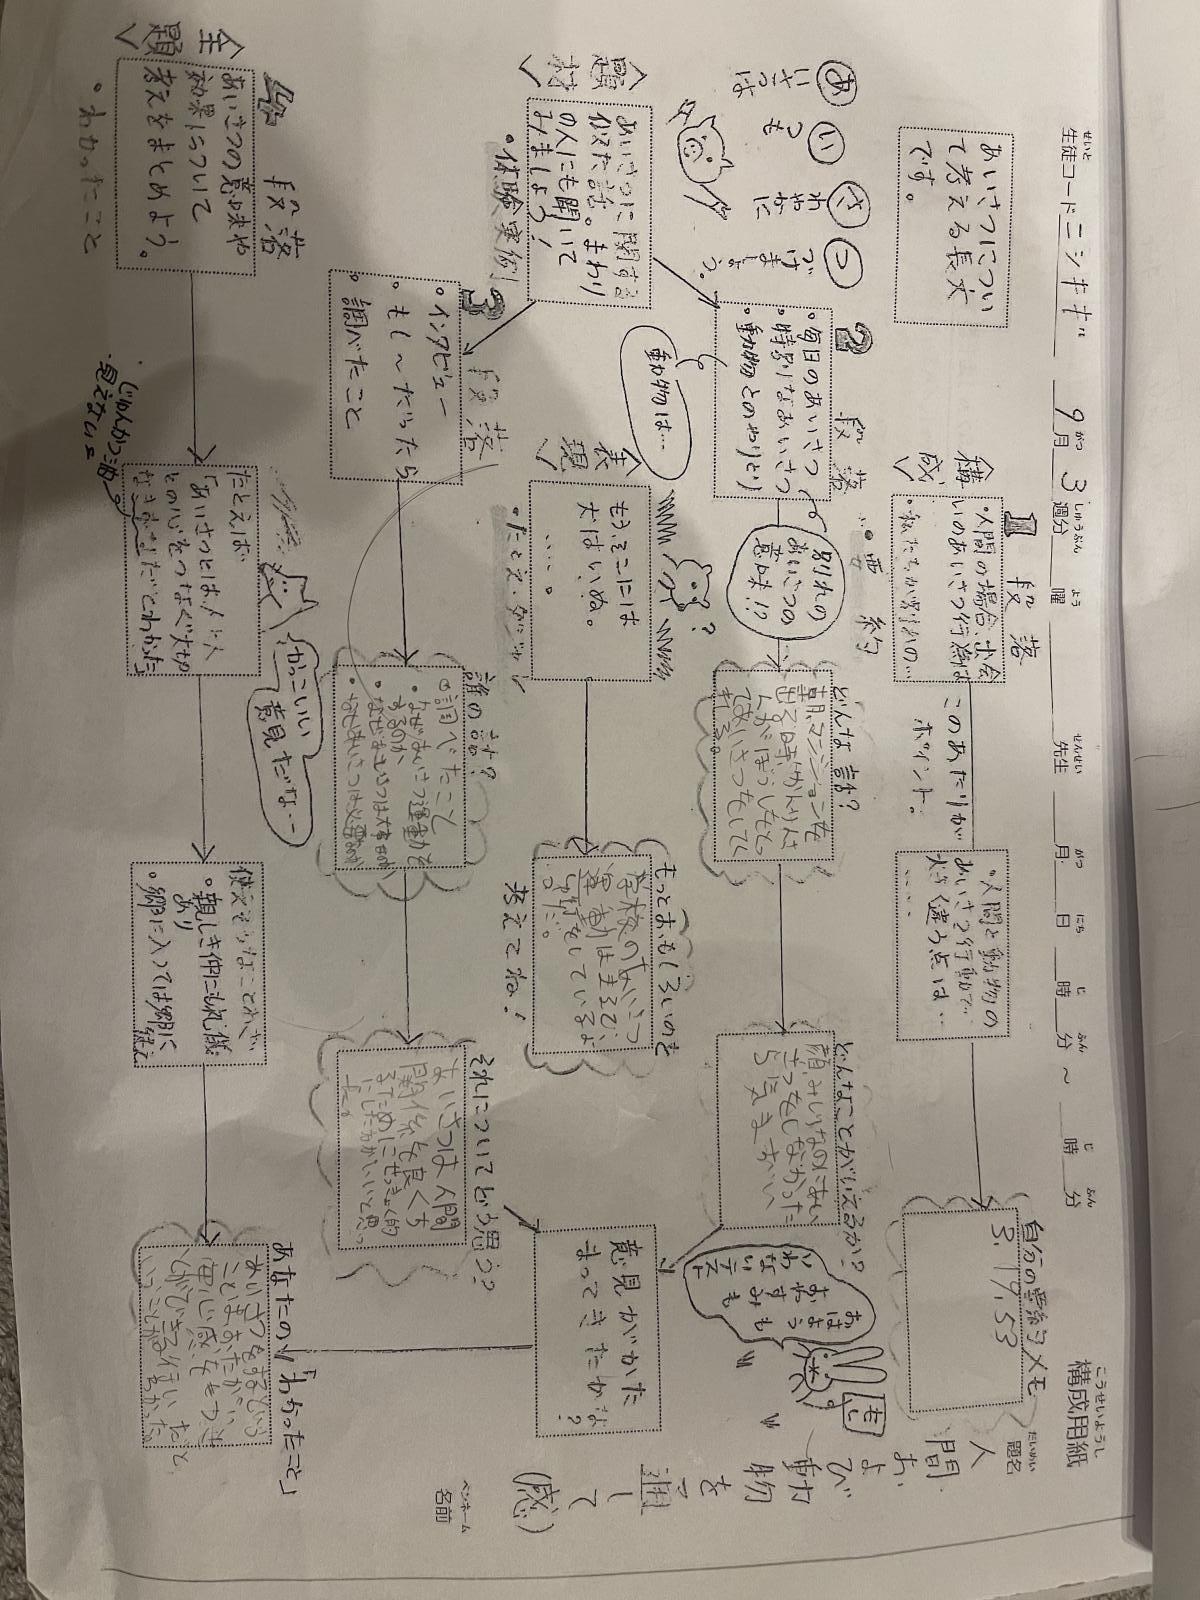 せいと
生徒コード ニシキギ 9月 3 週分 曜 先生 月 日 時 分 ~ 時 分 構成用紙
がつ
しゅうぶん
よう
せんせい
がつ
にち
じ
ふん
じ
ふん
こうせいようし
だいめい
題名
人間および動物を通して(感)
ペンネーム
名前
あいさつについ
て考える長文
です。
あいさつは
いつも
さわやかに
つづけましょう。
<構成>
1 段落
・要約
・人間の場合、出会
いのあいさつ行動は
・私たちが別れの…
このあたりが
ポイント。
・人間と動物の
あいさつ行動で
大きく違う点は…
……
自分の要約メモ
3.17.53
<題材>
あいさつに関する
似た話。まわり
の人にも聞いて
みましょう!
・体験実例
2 段落
・毎日のあいさつ
・特別なあいさつ
・動物とのやりとり
動物は…
別れの
あいさつの
意味!?
どんな話?
朝、マンションを
出る時、かんりに
んがぼうしをとっ
てあいさつをしてく
れる。
どんなことがいえるか?
顔みしりなのにあい
さつをしなかった
ら気まずい
おはようも
おやすみも
いわないテスト
<表現>
もうそこには
犬はいぬ。
……。
・たとえ・ダジャレ
?
もっとおもしろいのを
考えてね!
学校のあいさつ
運動はまるで、
選挙をしているよ
うだ。
意見がかた
まってきたかな?
3 段落
・インタビュー
・もし〜だったら
・調べたこと
誰の話?
・調べたこと
・なぜあいさつ運動を
するのか、
・なぜあいさつは大事なのか
・なぜあいさつは必要なのか
それについてどう思う?
あいさつは人間
関係を良くす
るためにせっきょく的
にした方がいいと思っ
た。
4 段落
<主題>
あいさつの意味や
効果について
考えをまとめよう。
・わかったこと
じゅんかつ油
見えないェ
たとえば
「あいさつとは、人と人
との心をつなぐ大切
なきずなだとわかった」
かっこいい
意見だな…
使えそうなことわざ
・親しき仲にも礼儀
あり
・郷に入っては郷に
従え
あなたの「わかったこと」
あいさつをするという
ことはおたがい
安心感をもつこと
ができる行いだと
いうことがわかった。